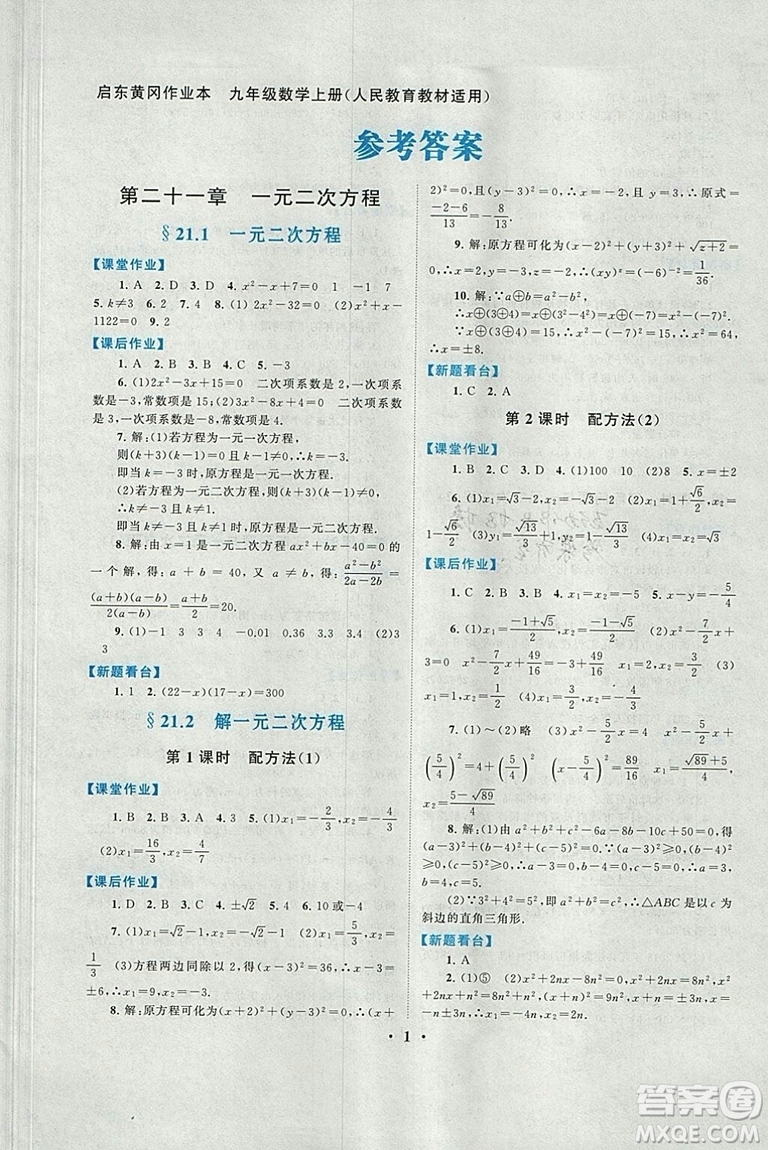 启东黄冈作业本 九年级数学上册(人民教育教材适用)
参考答案
第二十一章 一元二次方程
§21.1 一元二次方程
【课堂作业】
1. A 2. D 3. D 4. x²-x+1=0 1 -1 7
5. k≠3 6. 2 7. 4 8. (1)2x²-32=0 (2)x²+x-
1122=0 9. 2
【课后作业】
1. A 2. B 3. B 4. C 5. -3
6. (1)2x²-15=0 二次项系数是 2,一次项系
数是 0,常数项是 15;(2)x²-8x+4=0 二次项系数是
1,一次项系数是-8,常数项是 4.
7. 解:(1)若方程为一元一次方程,
则(k+3)(k-1)=0,且 k-1≠0.
即当 k=-3 时,原方程是一元一次方程.
(2)若方程为一元二次方程,则(k+3)(k-1)≠0.
即当 k≠1 且 k≠-3 时,原方程是一元二次方程.
8. 解:由 x=1 是一元二次方程 ax²+bx-40=0 的
一个解,得:a+b=40,又 a≠b,得:(a²-b²)/(2a-2b)=
(a+b)(a-b)/2(a-b)=(a+b)/2=20.
9. (1)-1 3 3 4 -0.01 0.36 3.3 3.4 (2)3
3
【新题看台】
1. 1 2. (22-x)(17-x)=300
§21.2 解一元二次方程
第 1 课时 配方法(1)
【课堂作业】
1. B 2. D 3. A 4. 3 5. (1)x₁=-2/3,x₂=-4/3
(2)x₁=16/3,x₂=4/7
【课后作业】
1. D 2. B 3. C 4. ±√2 5. 4 6. 10 或-4
7. (1)x₁=√2-1,x₂=-√2-1 (2)x₁=5/3,x₂=
1/3 (3)方程两边同除以 2,得(x-3)²=36,∴x-3=
±6,∴x₁=9,x₂=-3.
8. 解:原方程可化为(x+2)²+(y-3)²=0,∴(x+
2)²=0,且(y-3)²=0,∴x=-2 且 y=3,∴原式=
(-2-6)/13=-8/13.
9. 解:原方程可化为(x-2)²+(y+3)²+√(z+2)=
0,∴x=2,y=-3,z=-2,∴(xy)ᶻ=(-6)⁻²=1/36.
10. 解:∵a⊕b=a²-b²,
∴x⊕(3⊕4)=x⊕(3²-4²)=x⊕(-7)=x²-7².
∵x⊕(3⊕4)=15,∴x²-7²=15,∴x²=64,
∴x=±8.
【新题看台】
1. C 2. A
第 2 课时 配方法(2)
【课堂作业】
1. B 2. D 3. A 4. (1)100 10 (2) 5. x=±2
6. (1)x₁=√3-2,x₂=-√3-2 (2)x₁=1+√6/2,x₂=
1-√6/2 (3)y₁=√13/3+1,y₂=1-√13/3 (4)x₁=x₂=√3
【课后作业】
1. C 2. B 3. C 4. x₁=3,x₂=-5 5. x=-5/4
6. (1)x₁=(-1+√5)/2,x₂=(-1-√5)/2 (2)2x²-7x
+3=0 x²-7/2x+49/16=-3/2+49/16 x₁=1/2,x₂=3 (3)
x₁=x₂=1/2 (4)x₁=4,x₂=-2
7. (1)~(2)略 (3)2x²-5x-8=0 x²-5/2x+
(5/4)²-(5/4)²=4 (x-5/4)²=89/16 x₁=(√89+5)/4,
x₂=(5-√89)/4
8. 解:(1)由 a²+b²+c²-6a-8b-10c+50=0,得
(a-3)²+(b-4)²+(c-5)²=0.∵(a-3)²≥0,(b-4)²
≥0,(c-5)²≥0,∴a-3=0,b-4=0,c-5=0,∴a=3,
b=4,c=5.
(2)∵3²+4²=5²,即a²+b²=c²,∴△ABC 是以 c 为
斜边的直角三角形.
【新题看台】
1. A
2. (1)⑤ (2)x²+2nx-8n²=0,x²+2nx=8n²,x²
+2nx+n²=8n²+n²,(x+n)²=9n²,x+n=±3n,
∴x₁=-4n,x₂=2n.
• 1 •
答案圈
MXQE.COM